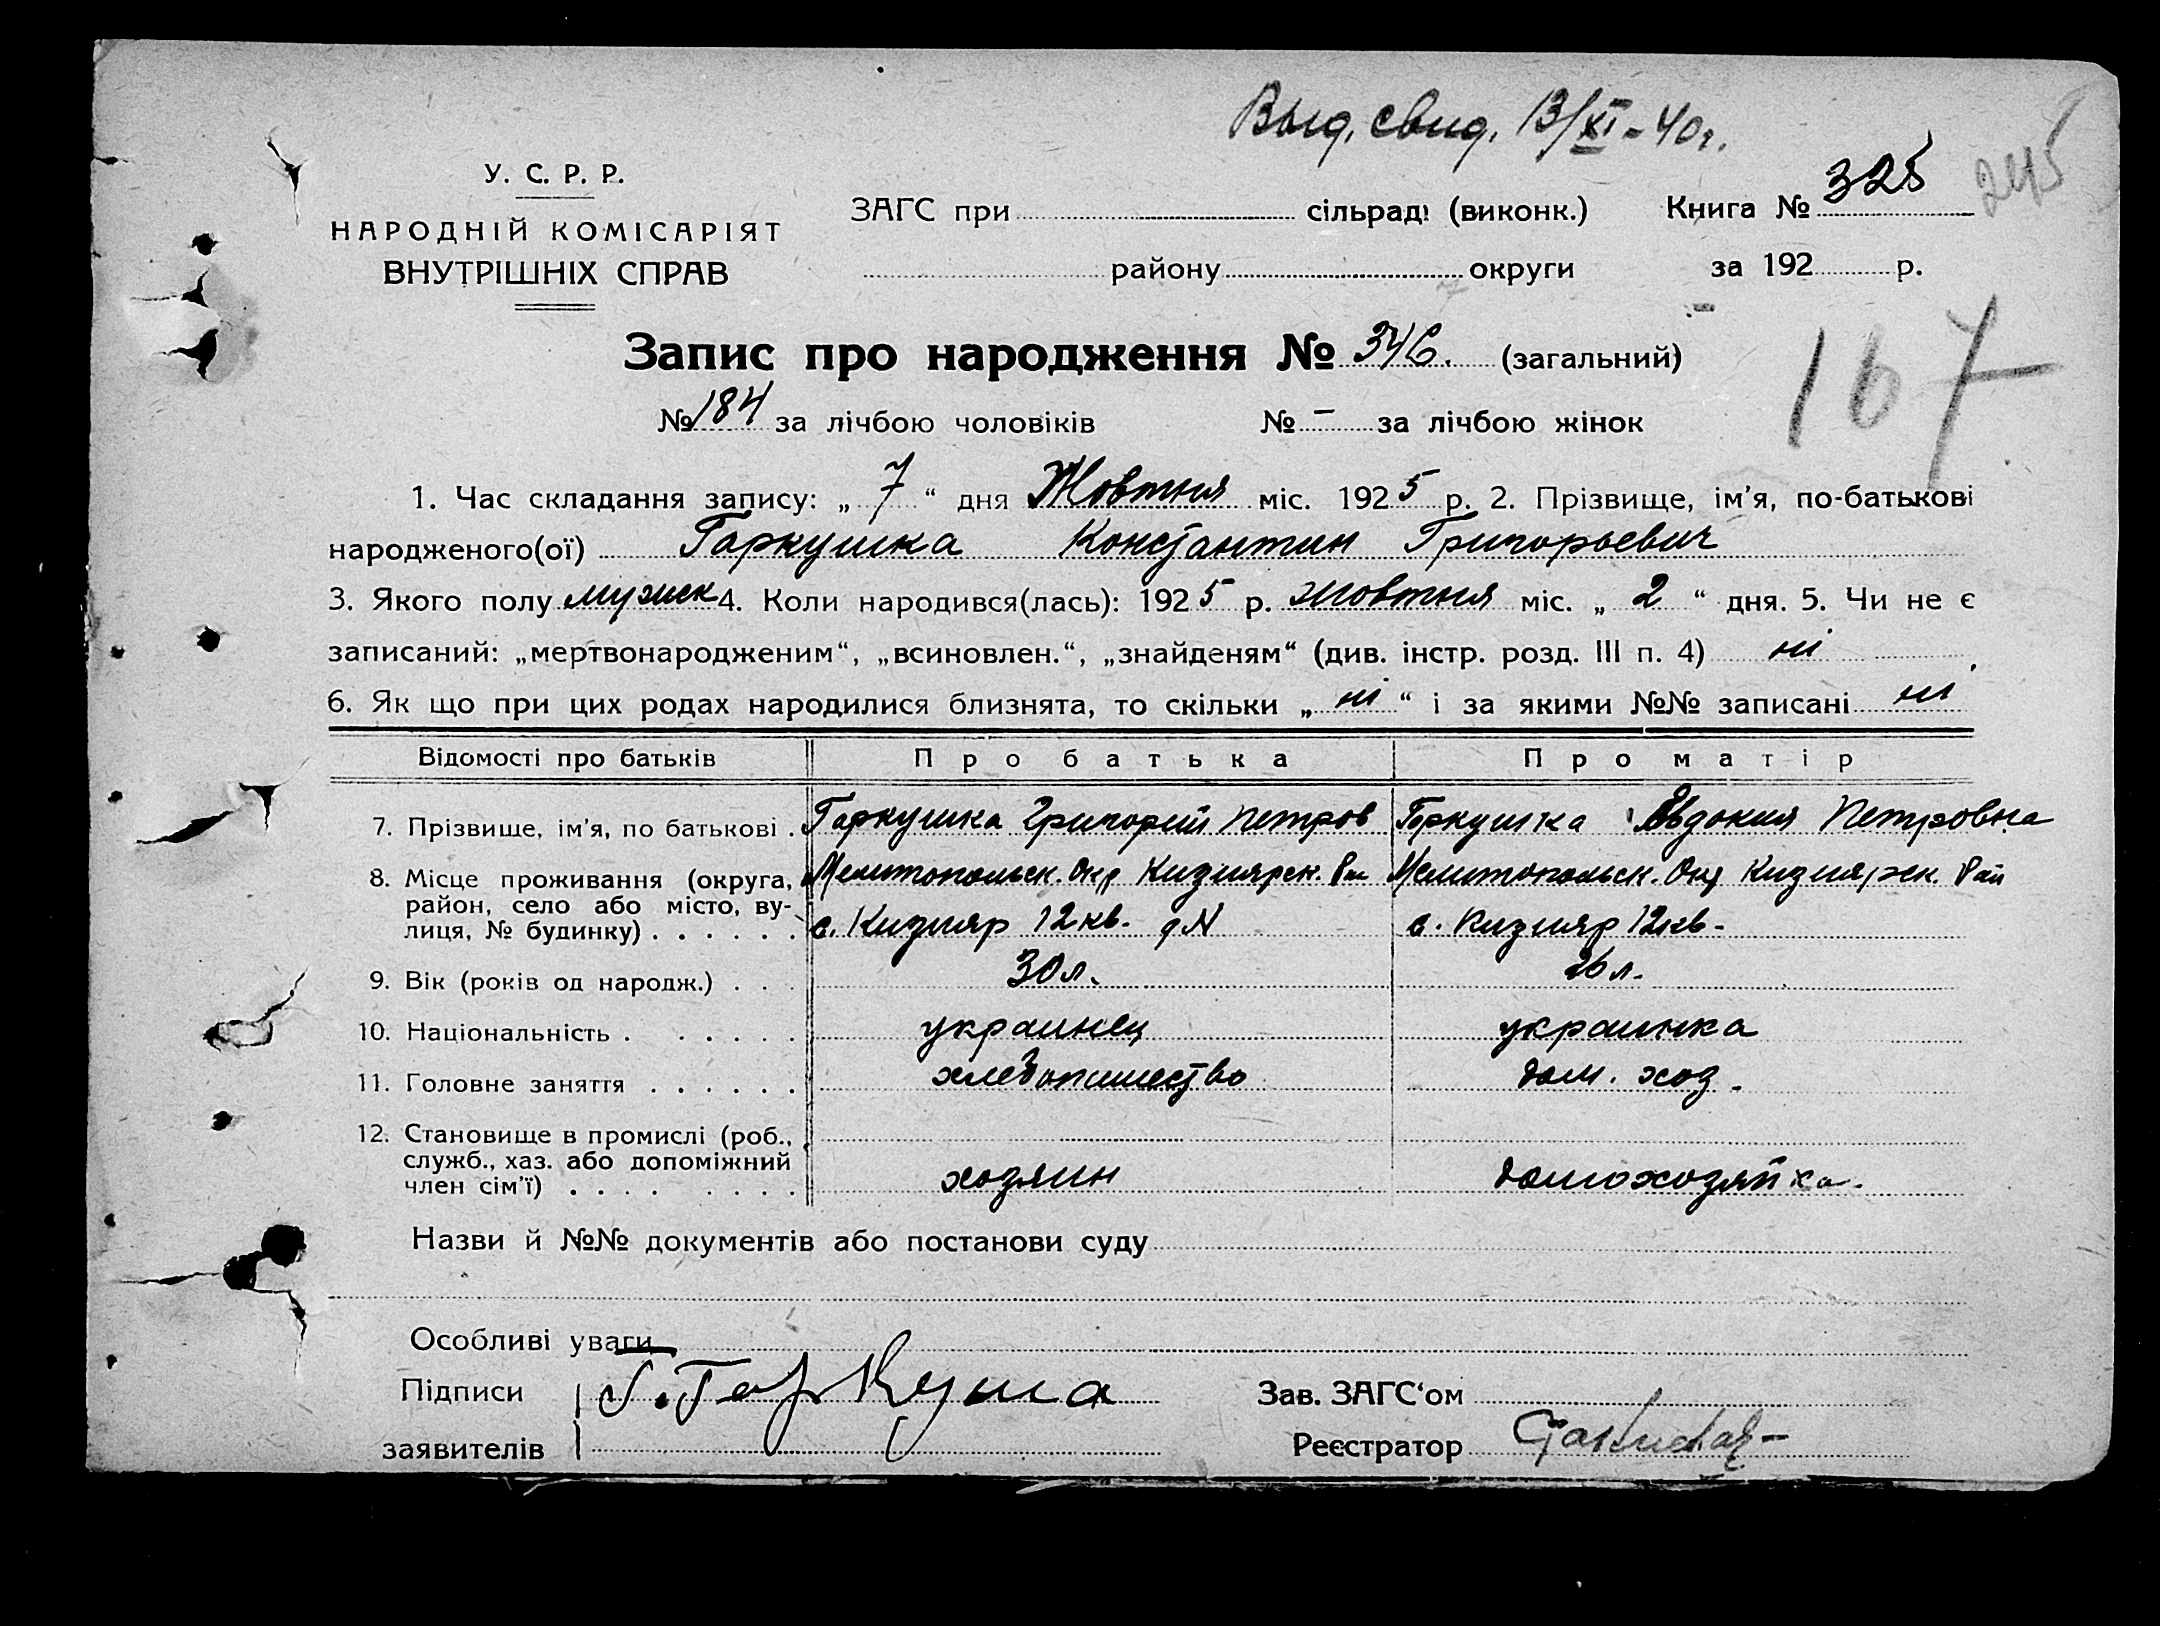 Выд. свид. 13/XI - 40г.
245
У. С. Р. Р.
НАРОДНІЙ КОМІСАРІЯТ
ВНУТРІШНІХ СПРАВ
ЗАГС при сільради (виконк.) Книга № 325
району округи за 192 р.
167
Запис про народження № 346. (загальний)
№ 184 за лічбою чоловіків № – за лічбою жінок
1. Час складання запису: „ 7 “ дня Жовтня міс. 1925 р. 2. Прізвище, ім'я, по-батькові
народженого(ої) Гаркушка Константин Григорьевич
3. Якого полу мужск 4. Коли народився(лась): 1925 р. жовтня міс. „ 2 “ дня. 5. Чи не є
записаний: „мертвонародженим“, „всиновлен.“, „знайденям“ (див. інстр. розд. III п. 4) ні
6. Як що при цих родах народилися близнята, то скільки „ ні “ і за якими №№ записані ні
Відомості про батьків Про батька Про матір
7. Прізвище, ім'я, по батькові . Гаркушка Григорий Петров Гаркушка Явдокия Петровна
8. Місце проживання (округа, Мелитопольск. Окр Кизиярск. Мелитопольск. Окр Кизиярск. Рай
район, село або місто, ву-
лиця, № будинку) . . . . . . с. Кизияр 12 кв. д N с. Кизияр 12 кв -
9. Вік (років од народж.) . . . 30 л. 26 л.
10. Національність . . . . . . украинец украинка
11. Головне заняття . . . . . . хлебопашество дом. хоз.
12. Становище в промислі (роб.,
служб., хаз. або допоміжний
член сім'ї) . . . . . . . . хозяин домохозяйка.
Назви й №№ документів або постанови суду
Особливі уваги
Підписи Г. Гаркуша Зав. ЗАГС'ом
заявителів Реєстратор